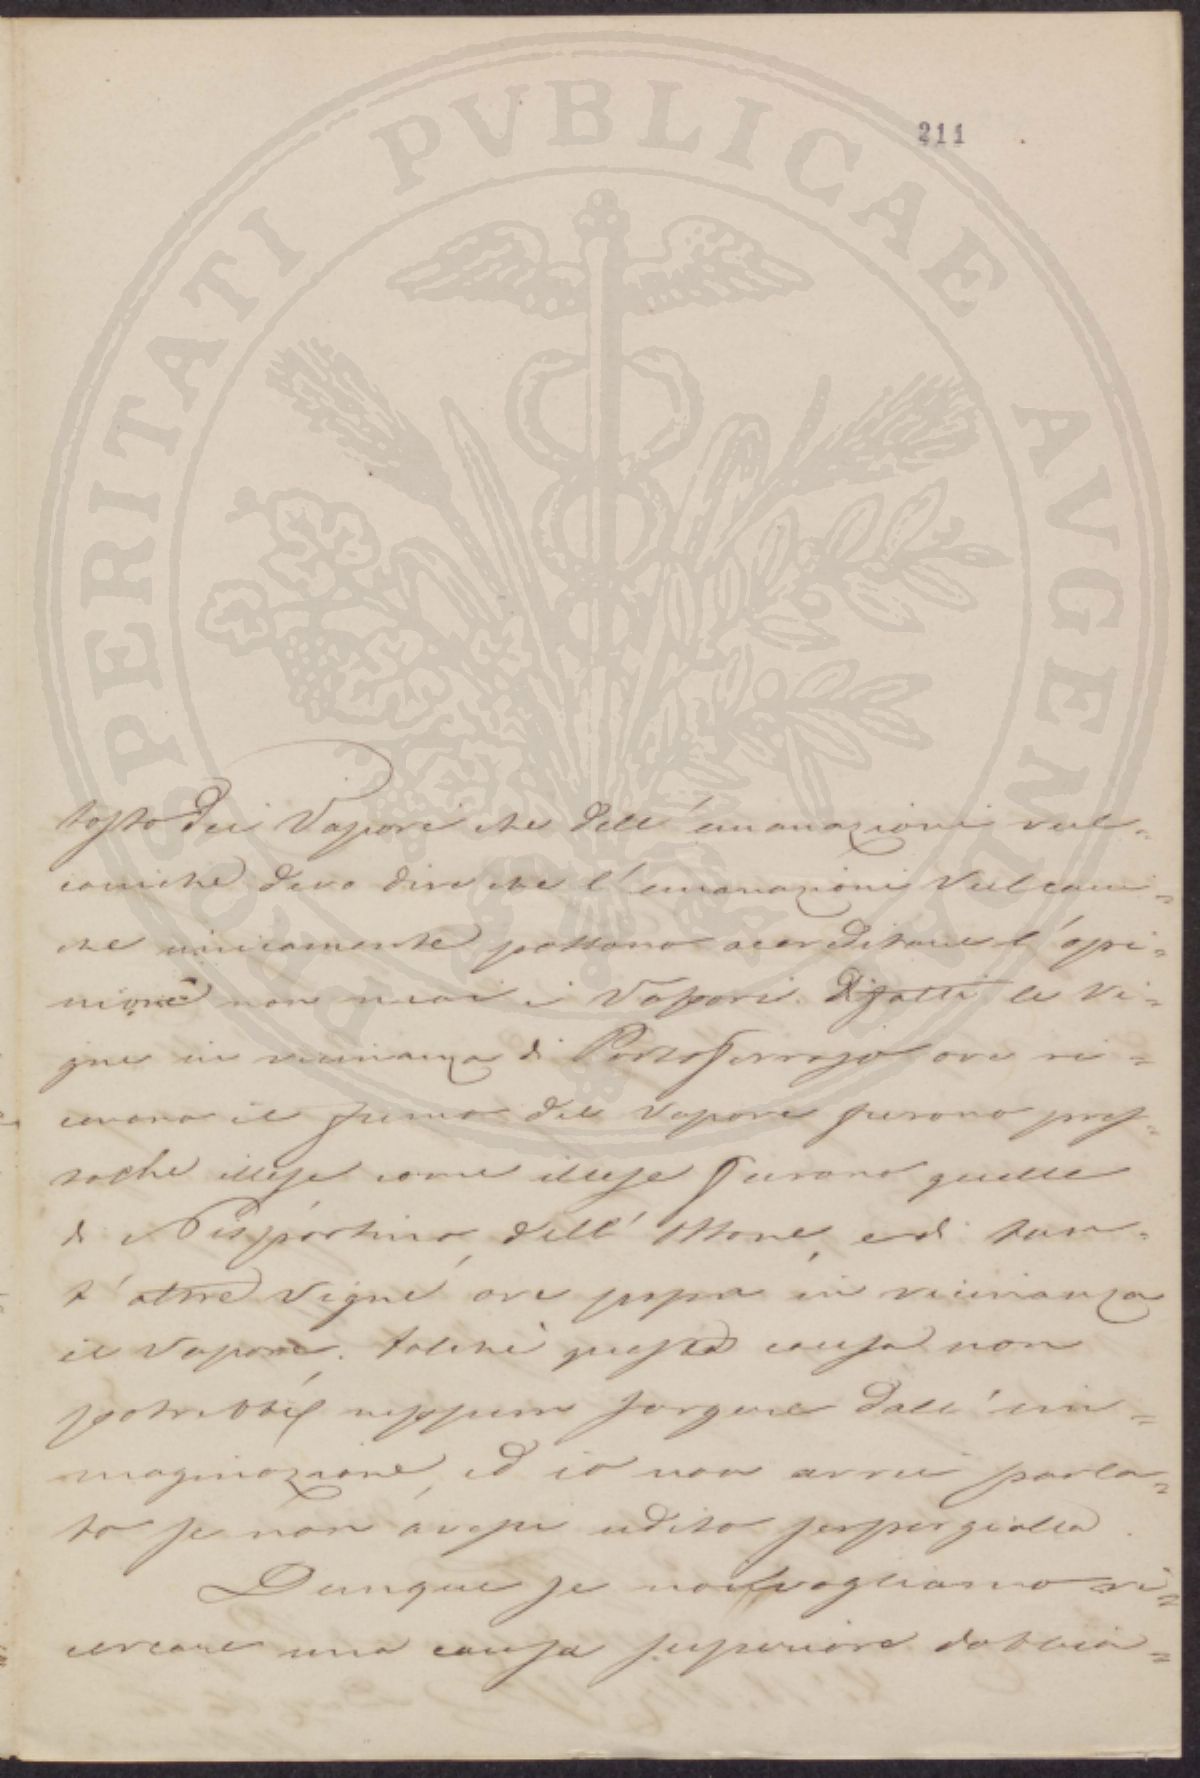 211
PROSPERITATI PVBLICAE AVGENDAE
tosto dei Vapori che dell'emanazioni vul=
caniche devo dire che l'emanazioni Vulcani=
che unicamente possono accreditare l'opi=
nione non mai i Vapori. Difatti le Vi=
gne in vicinanza di Portoferrajo ove ri=
cevono il fumo del Vapore furono pres=
soche illese come illese furono quelle
di Nisportino, dell'Ottone, e di tan=
t'altre Vigne, ove passa in vicinanza
il Vapore. talchè questa causa non
potrebbe neppure sorgere dall'im=
maginazione, ed io non avrei parla=
to se non avessi udito
Dunque se noi vogliamo ri=
cercare una causa superiore dobbia=